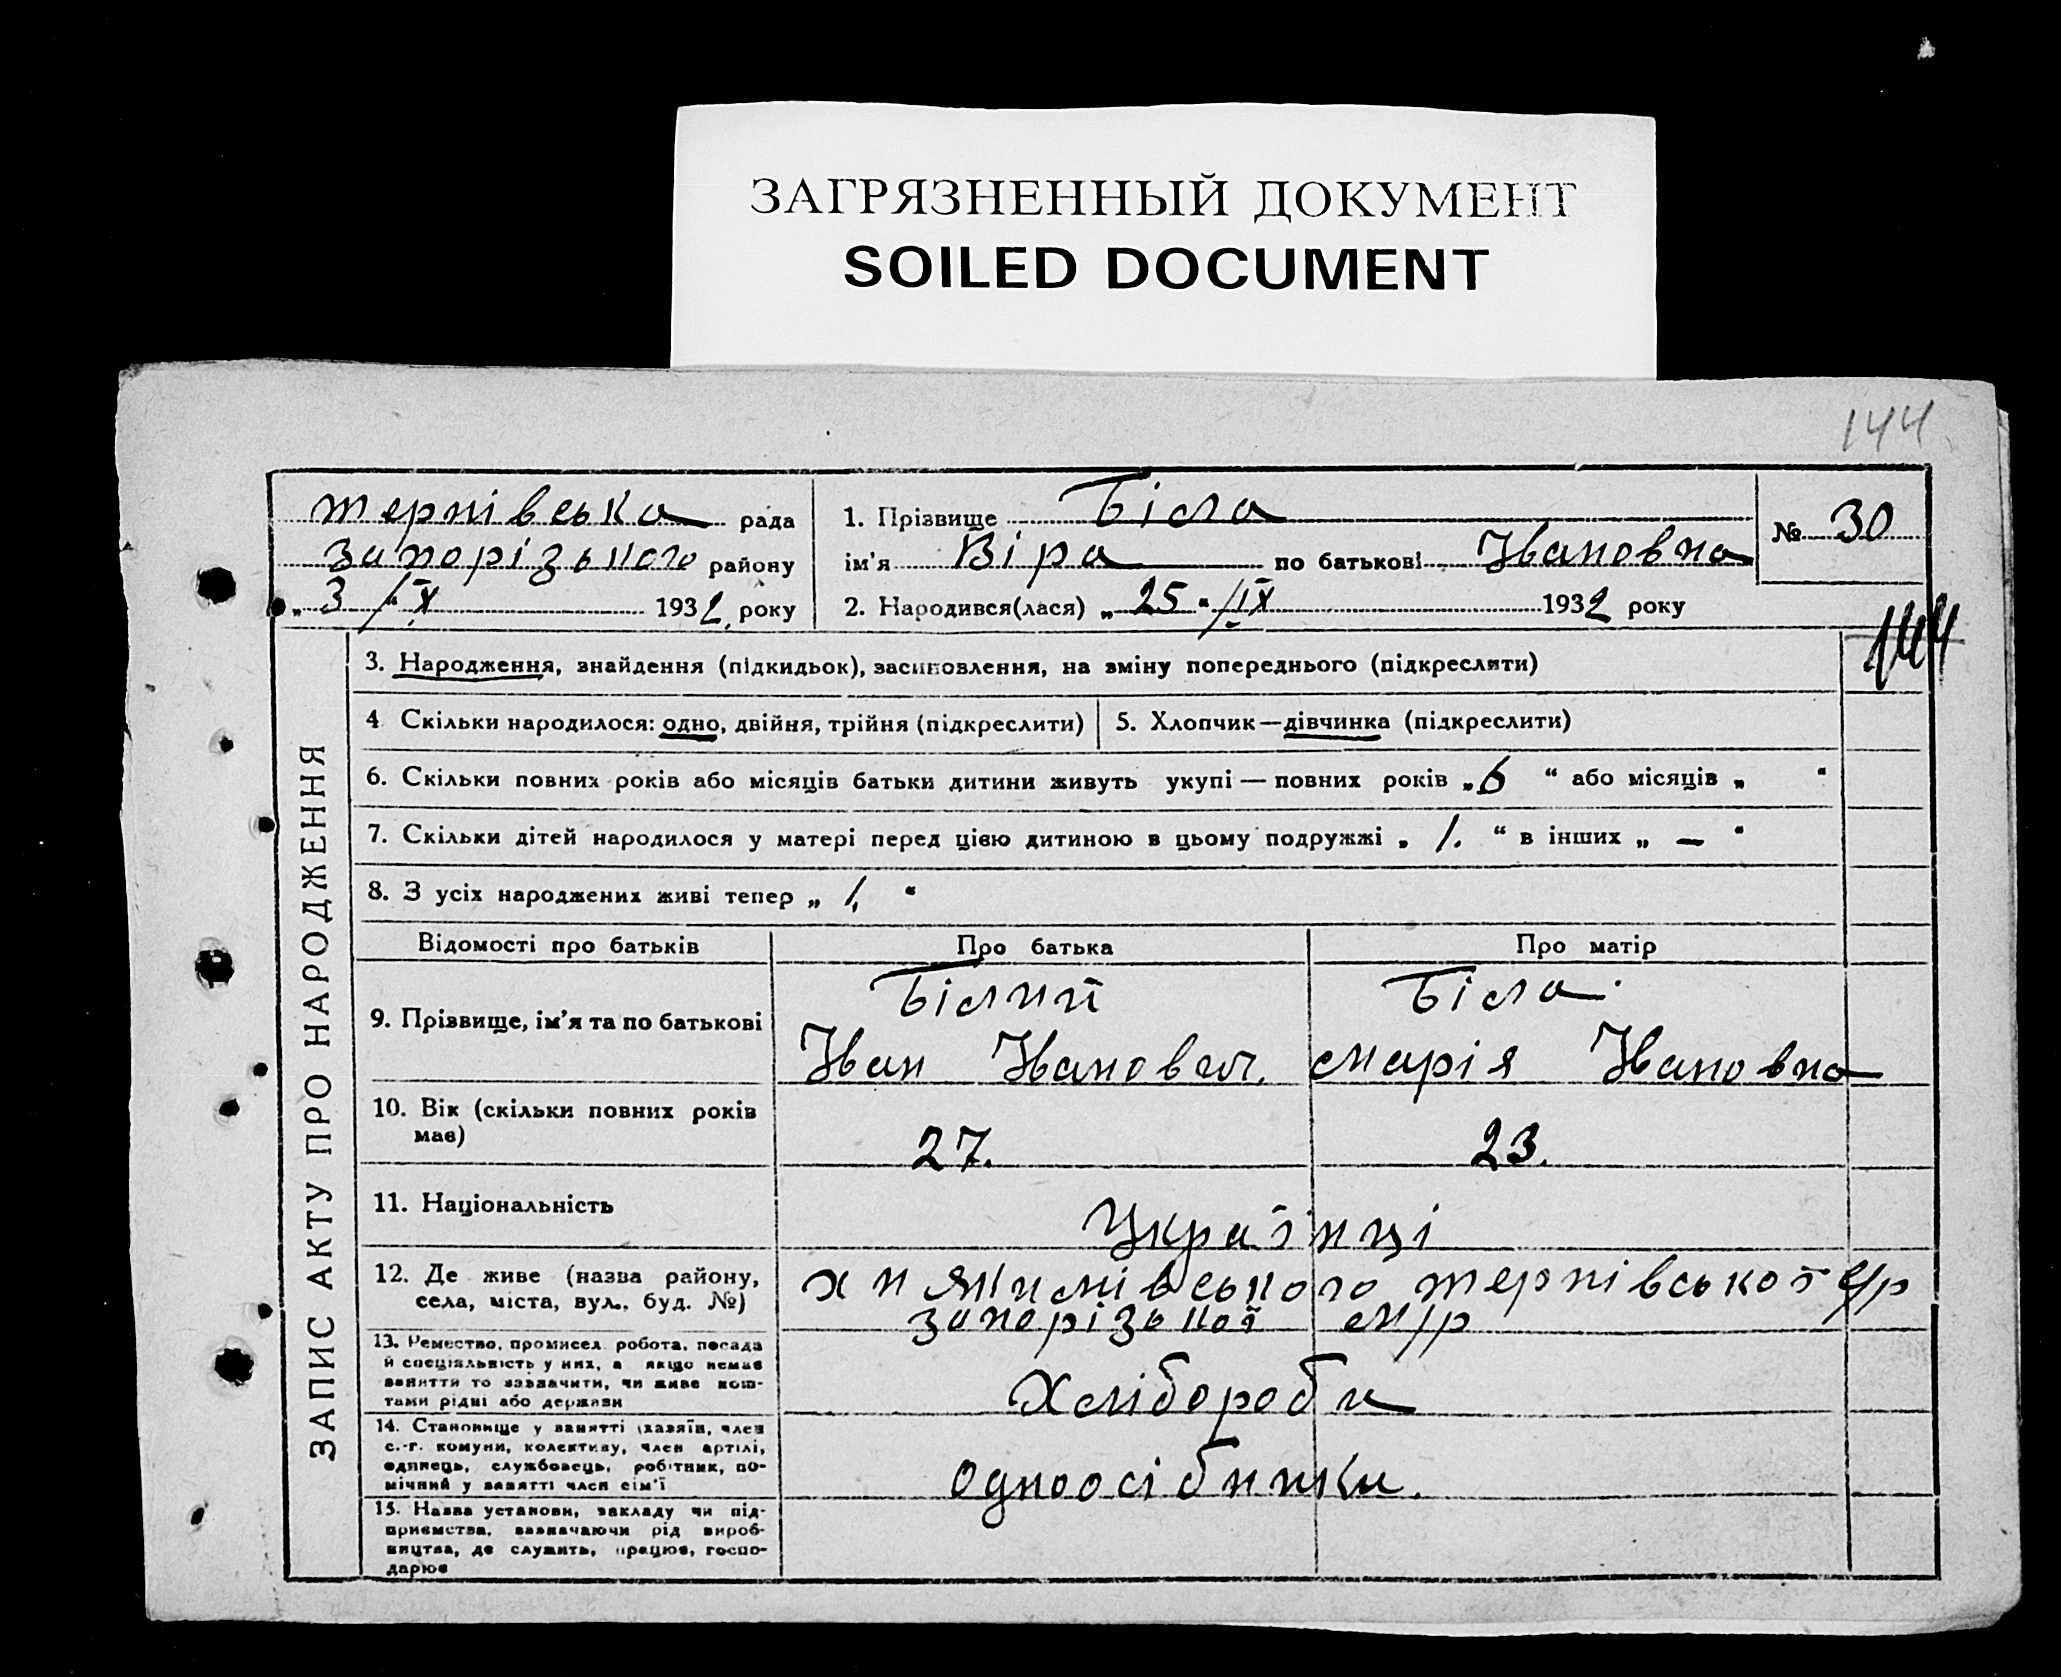 ЗАГРЯЗНЕННЫЙ ДОКУМЕНТ
SOILED DOCUMENT
144
Терпівська рада
Запорізького району
„ 3 “ /IX 1932 року
1. Прізвище Біла
ім'я Віра по батькові Івановна
2. Народився(лася) „ 25 “ /IX 1932 року
№ 30
144
ЗАПИС АКТУ ПРО НАРОДЖЕННЯ
3. Народження, знайдення (підкидьок), засиновлення, на зміну попереднього (підкреслити)
4 Скільки народилося: одно, двійня, трійня (підкреслити)
5. Хлопчик—дівчинка (підкреслити)
6. Скільки повних років або місяців батьки дитини живуть укупі — повних років „ 6 “ або місяців „ “
7. Скільки дітей народилося у матері перед цією дитиною в цьому подружжі „ 1. “ в інших „ — “
8. З усіх народжених живі тепер „ 1. “
Відомості про батьків Про батька Про матір
9. Прізвище, ім'я та по батькові
Білий
Іван Іванович.
Біла.
Марія Івановна
10. Вік (скільки повних років
має)
27. 23.
11. Національність
Українці
12. Де живе (назва району,
села, міста, вул., буд. №)
Терпівської с/р
Запорізької м/р
13. Ремество, промисел робота, посада
й спеціяльність у них, а якщо немає
заняття то зазначити, чи живе кош-
тами рідні або держави
Хлібороби
14. Становище у занятті (хазяїн, член
с.-г. комуни, колективу, член артілі,
одинець, службовець, робітник, по-
мічний у занятті член сім'ї
Одноосібники.
15. Назва установи, закладу чи під-
приємства, зазначаючи рід вироб-
ництва, де служить, працює, госпо-
дарює